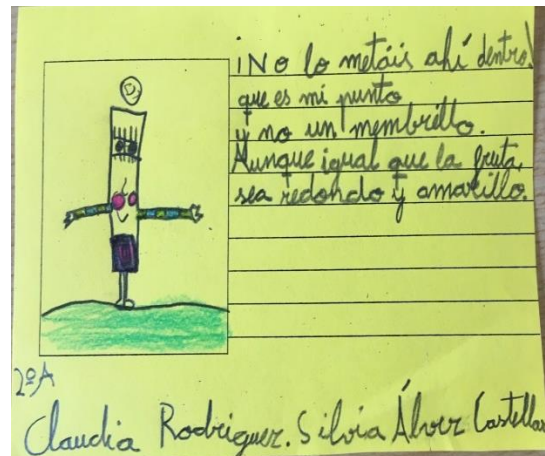 ¡No lo metáis ahí dentro!
que es mi punto
y no un membrillo.
Aunque igual que la fruta,
sea redondo y amarillo.
2ºA
Claudia Rodriguez. Silvia Álvez Castellas